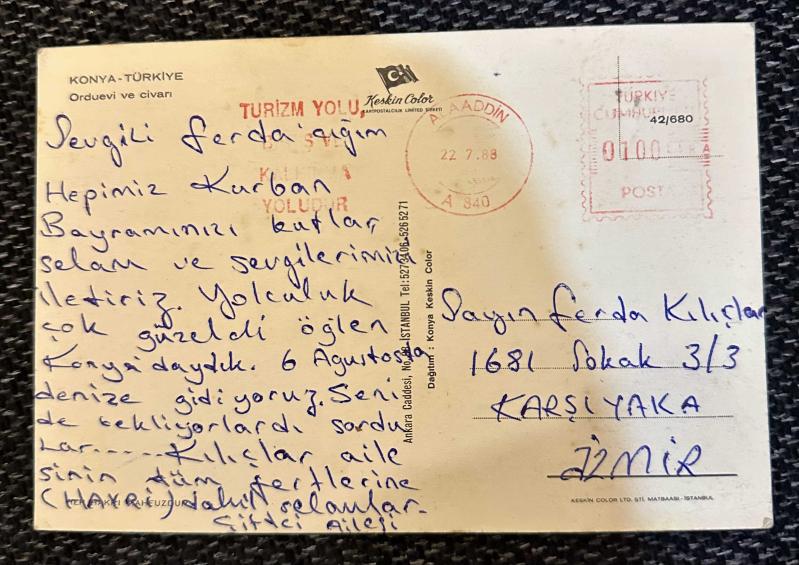 KONYA-TÜRKİYE
Orduevi ve civarı
Keskin Color
KARTPOSTALCILIK LİMİTED ŞİRKETİ
TURİZM YOLU,
YOLUDUR
ALAADDİN
22 7.88
A 840
TÜRKİYE
42/680
0100
POSTA
Sevgili Ferda'cığım
Hepimiz Kurban
Bayramınızı kutlar,
selam ve sevgilerimizi
iletiriz. Yolculuk
çok güzeldi öğlen
Konya'daydık. 6 Ağustosda
denize gidiyoruz. Seni
de bekliyorlardı sordu
lar..... Kılıçlar aile
sinin tüm fertlerine
(HAYRİ) dahil selamlar.
Çiftçi Ailesi
Ankara Caddesi, İSTANBUL Tel: 5273406-5265271
Dağıtım : Konya Keskin Color
Sayın Ferda Kılıçlar
1681 Sokak 3/3
KARŞIYAKA
İZMİR
KESKİN COLOR LTD. ŞTİ. MATBAASI-İSTANBUL